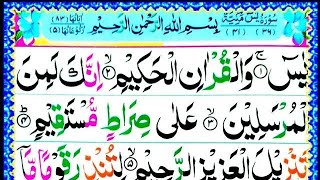 سُوْرَةُ يٰسٓ مَكِّيَّةٌ
(٣٦) (٤١)
بِسْمِ اللّٰهِ الرَّحْمٰنِ الرَّحِيْمِ
اٰيَاتُهَا (٨٣)
رُكُوْعَاتُهَا (٥)
يٰسٓ ۚ ﴿١﴾ وَالْقُرْاٰنِ الْحَكِيْمِ ﴿٢﴾ اِنَّكَ لَمِنَ
الْمُرْسَلِيْنَ ﴿٣﴾ عَلٰى صِرَاطٍ مُّسْتَقِيْمٍ ﴿٤﴾
تَنْزِيْلَ الْعَزِيْزِ الرَّحِيْمِ ﴿٥﴾ لِتُنْذِرَ قَوْمًا مَّاۤ